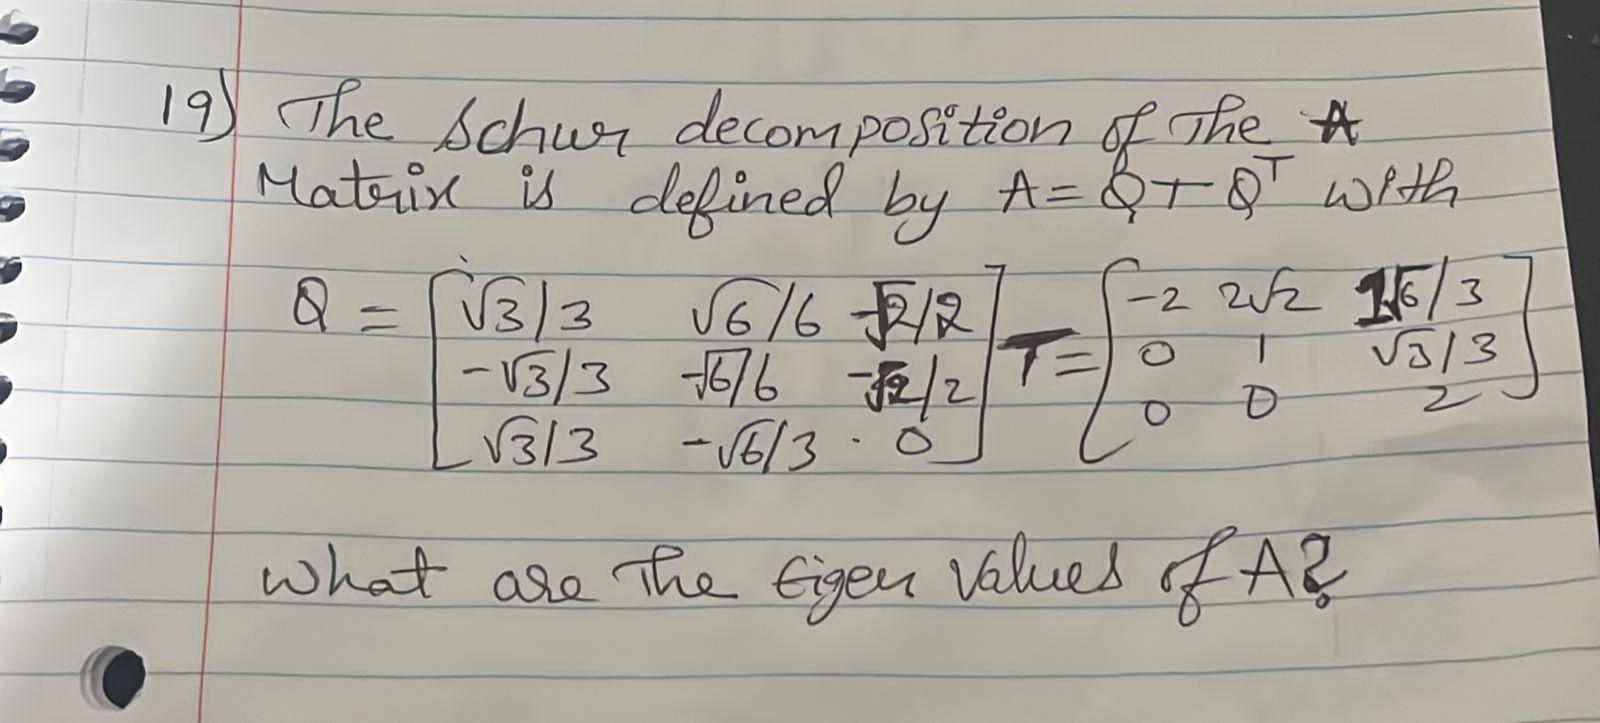 19) The Schur decomposition of The A
Matrix is defined by A = QTQᵀ with
Q = [√3/3 √6/6 -√2/2] T = [-2 2√2 √6/3]
[-√3/3 -√6/6 -√2/2] [0 1 √3/3]
[√3/3 -√6/3 0] [0 0 2]
What are The Eigen Values of A?